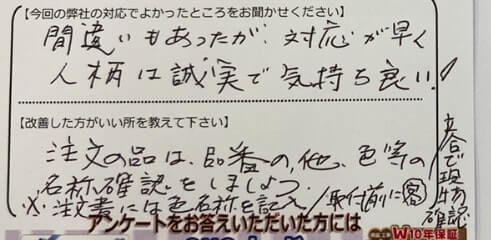 【今回の弊社の対応でよかったところをお聞かせください】
間違いもあったが、対応が早く
人柄は誠実で気持ち良い！
【改善した方がいい所を教えて下さい】
注文の品は、品番の他、色等の
名称確認をしましょう
※注文書には色名称を記入/取付前に客
立合で現物確認
アンケートをお答えいただいた方には
W10年保証